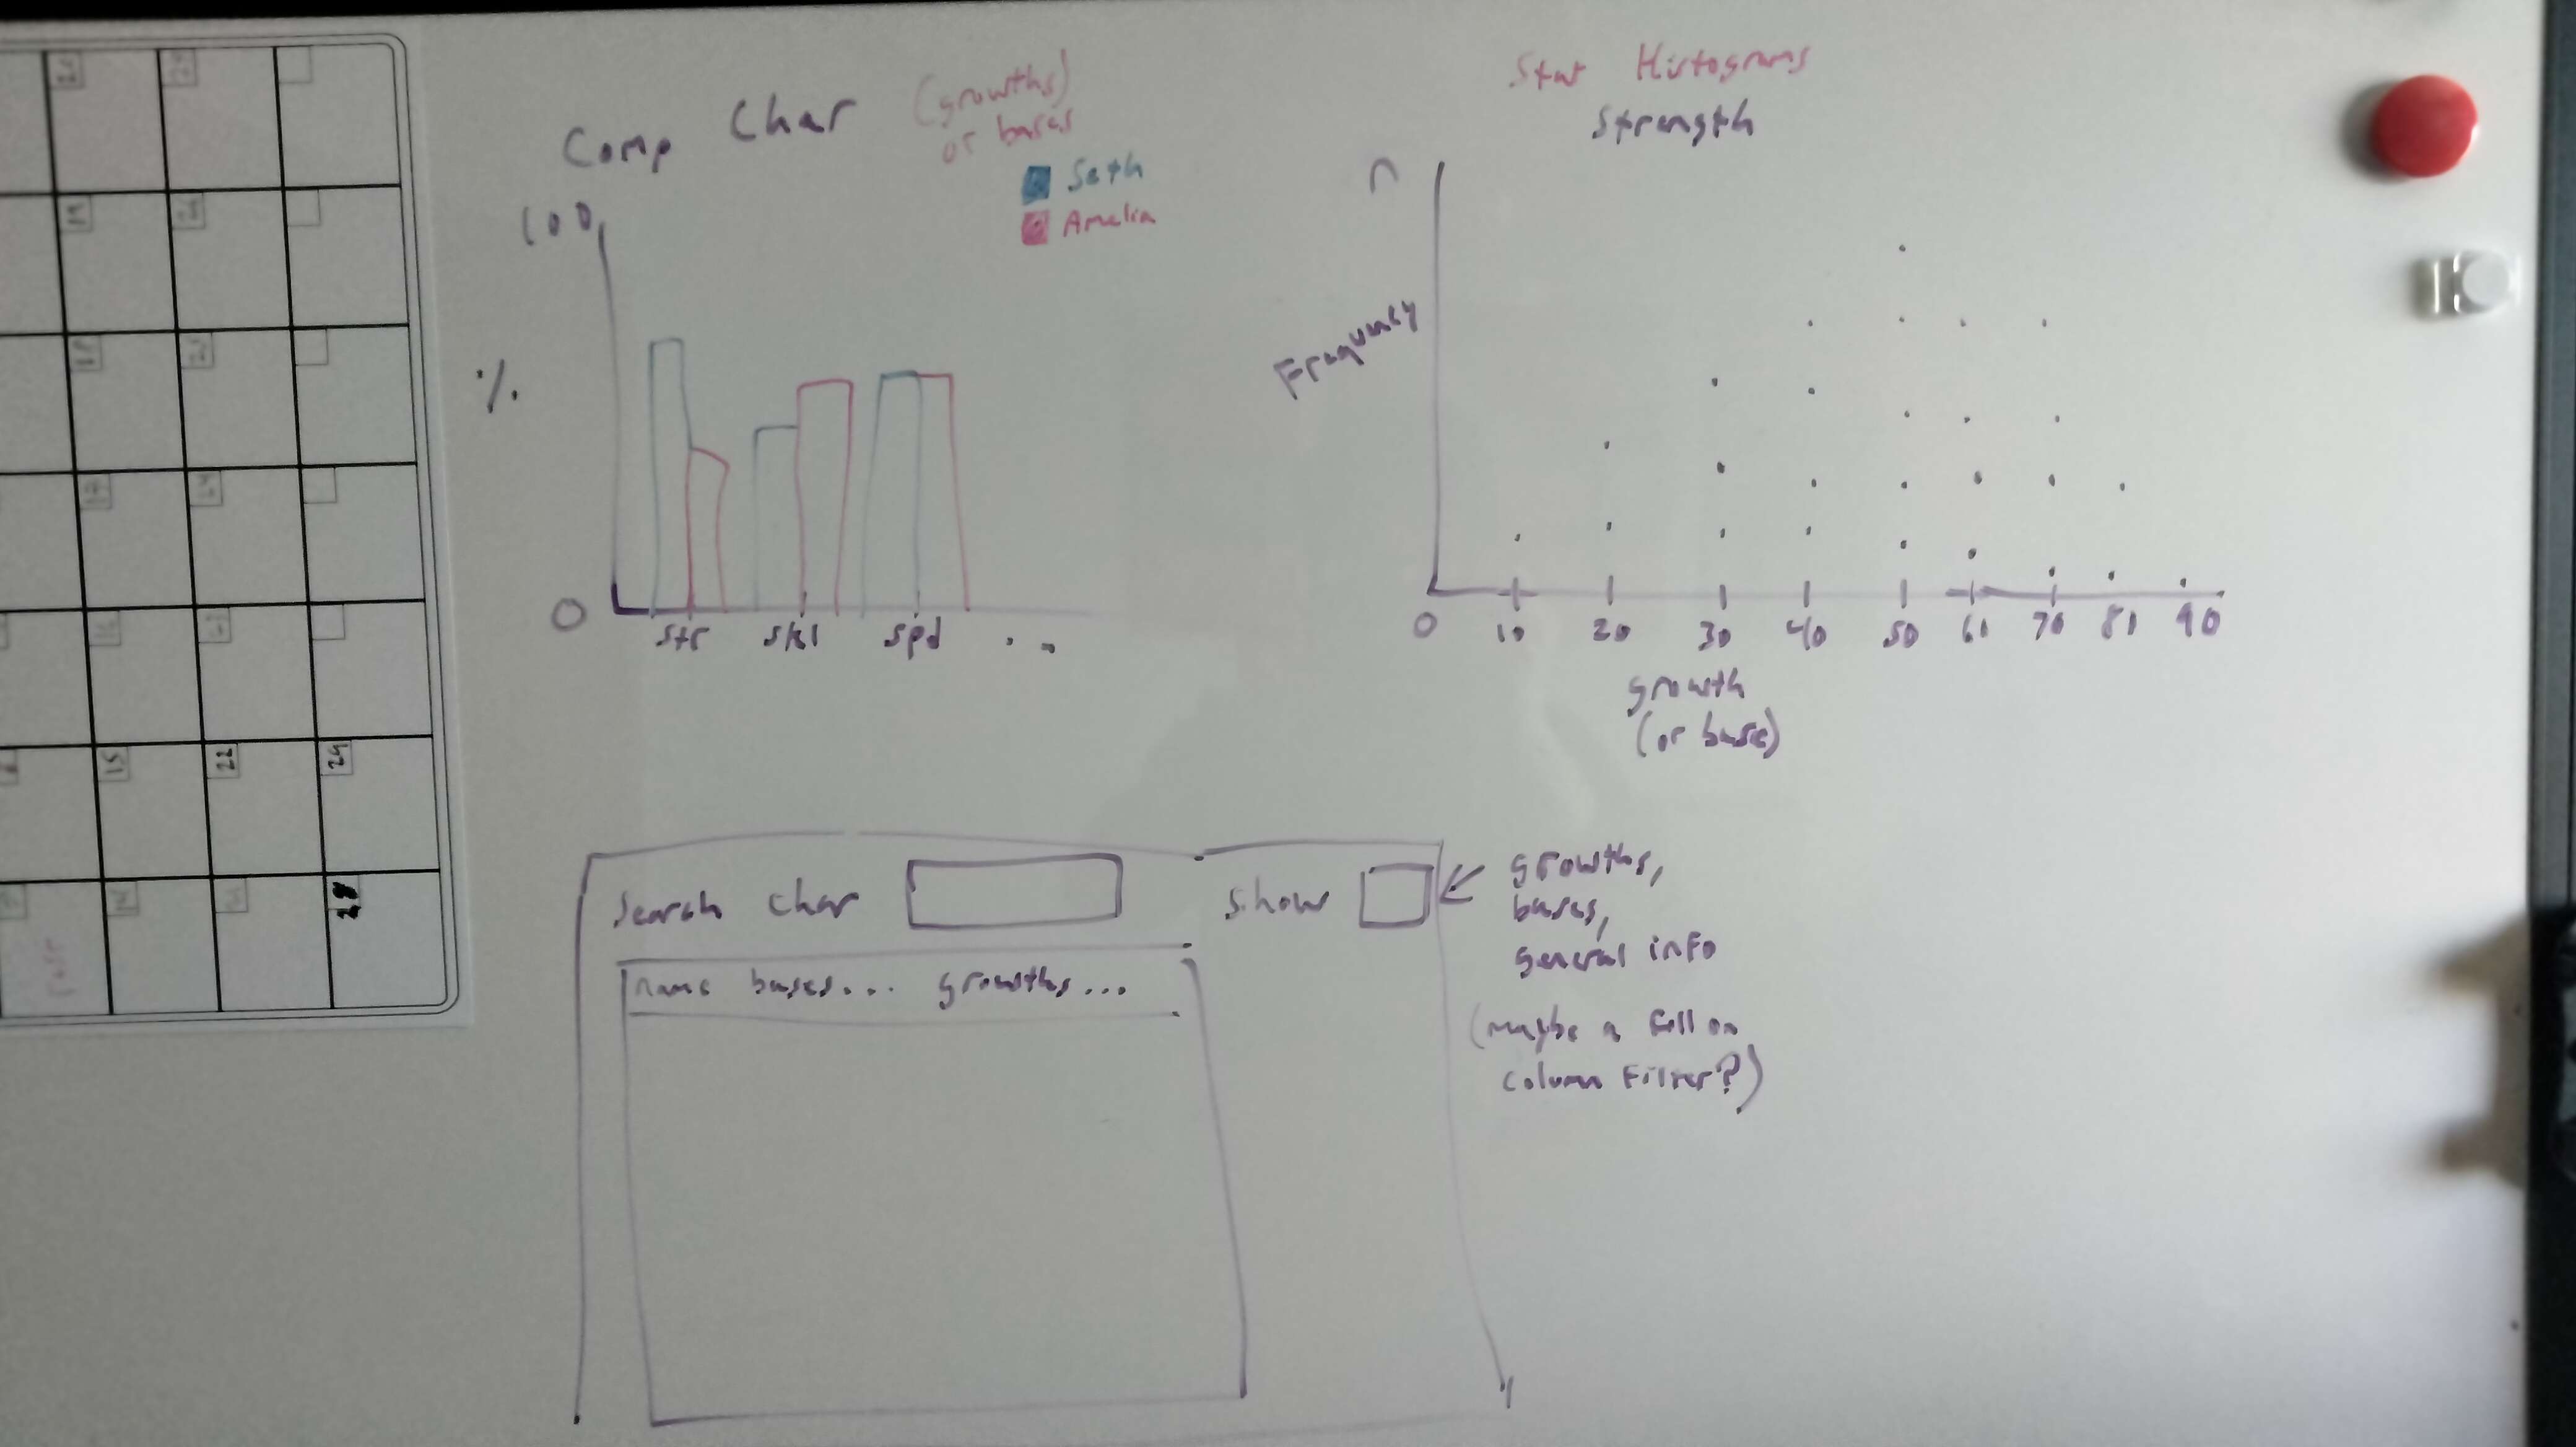 Comp Char (growths)
or bases
Seth
Amelia
100
%
0
str skl spd ..
Stat Histograms
Strength
n
Frequency
0 10 20 30 40 50 60 70 80 90
growth
(or base)
Search char
Show
name bases... growths...
growths,
bases,
general info
(maybe a full on
column filter?)
15 22 29
28